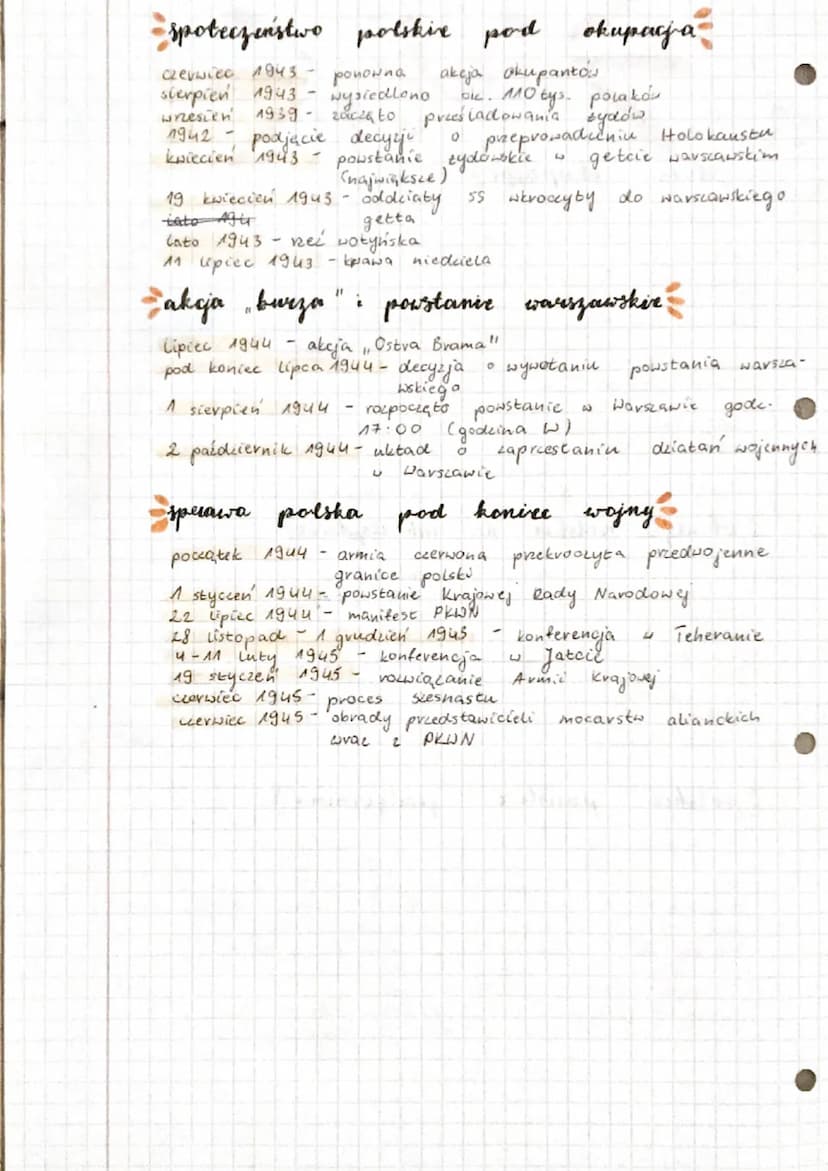 społeczeństwo polskie pod okupacją
czerwiec 1943 - ponowna akcja okupantów
sierpień 1943 - wysiedlono ok. 110 tys. polaków
wrzesień 1939 - zaczęto prześladowania żydów
1942 - podjęcie decyzji o przeprowadzeniu Holokaustu
kwiecień 1943 - powstanie żydowskie w getcie warszawskim
(największe)
19 kwiecień 1943 - oddziały SS wkroczyły do warszawskiego
lato 194 getta
lato 1943 - rzeź wołyńska
11 lipiec 1943 - krwawa niedziela
akcja „burza" i powstanie warszawskie
lipiec 1944 - akcja „Ostra Brama"
pod koniec lipca 1944 - decyzja o wywołaniu powstania warsza-
wskiego
1 sierpień 1944 - rozpoczęto powstanie w Warszawie godz.
17:00 (godzina W)
2 październik 1944 - układ o zaprzestaniu działań wojennych
w Warszawie
sprawa polska pod koniec wojny
początek 1944 - armia czerwona przekroczyła przedwojenne
granice polski
1 styczeń 1944 - powstanie Krajowej Rady Narodowej
22 lipiec 1944 - manifest PKWN
28 listopad - 1 grudzień 1943 - konferencja w Teheranie
4-11 luty 1945 - konferencja w Jałcie
19 styczeń 1945 - rozwiązanie Armii Krajowej
czerwiec 1945 - proces szesnastu
czerwiec 1945 - obrady przedstawicieli mocarstw alianckich
wraz z PKWN